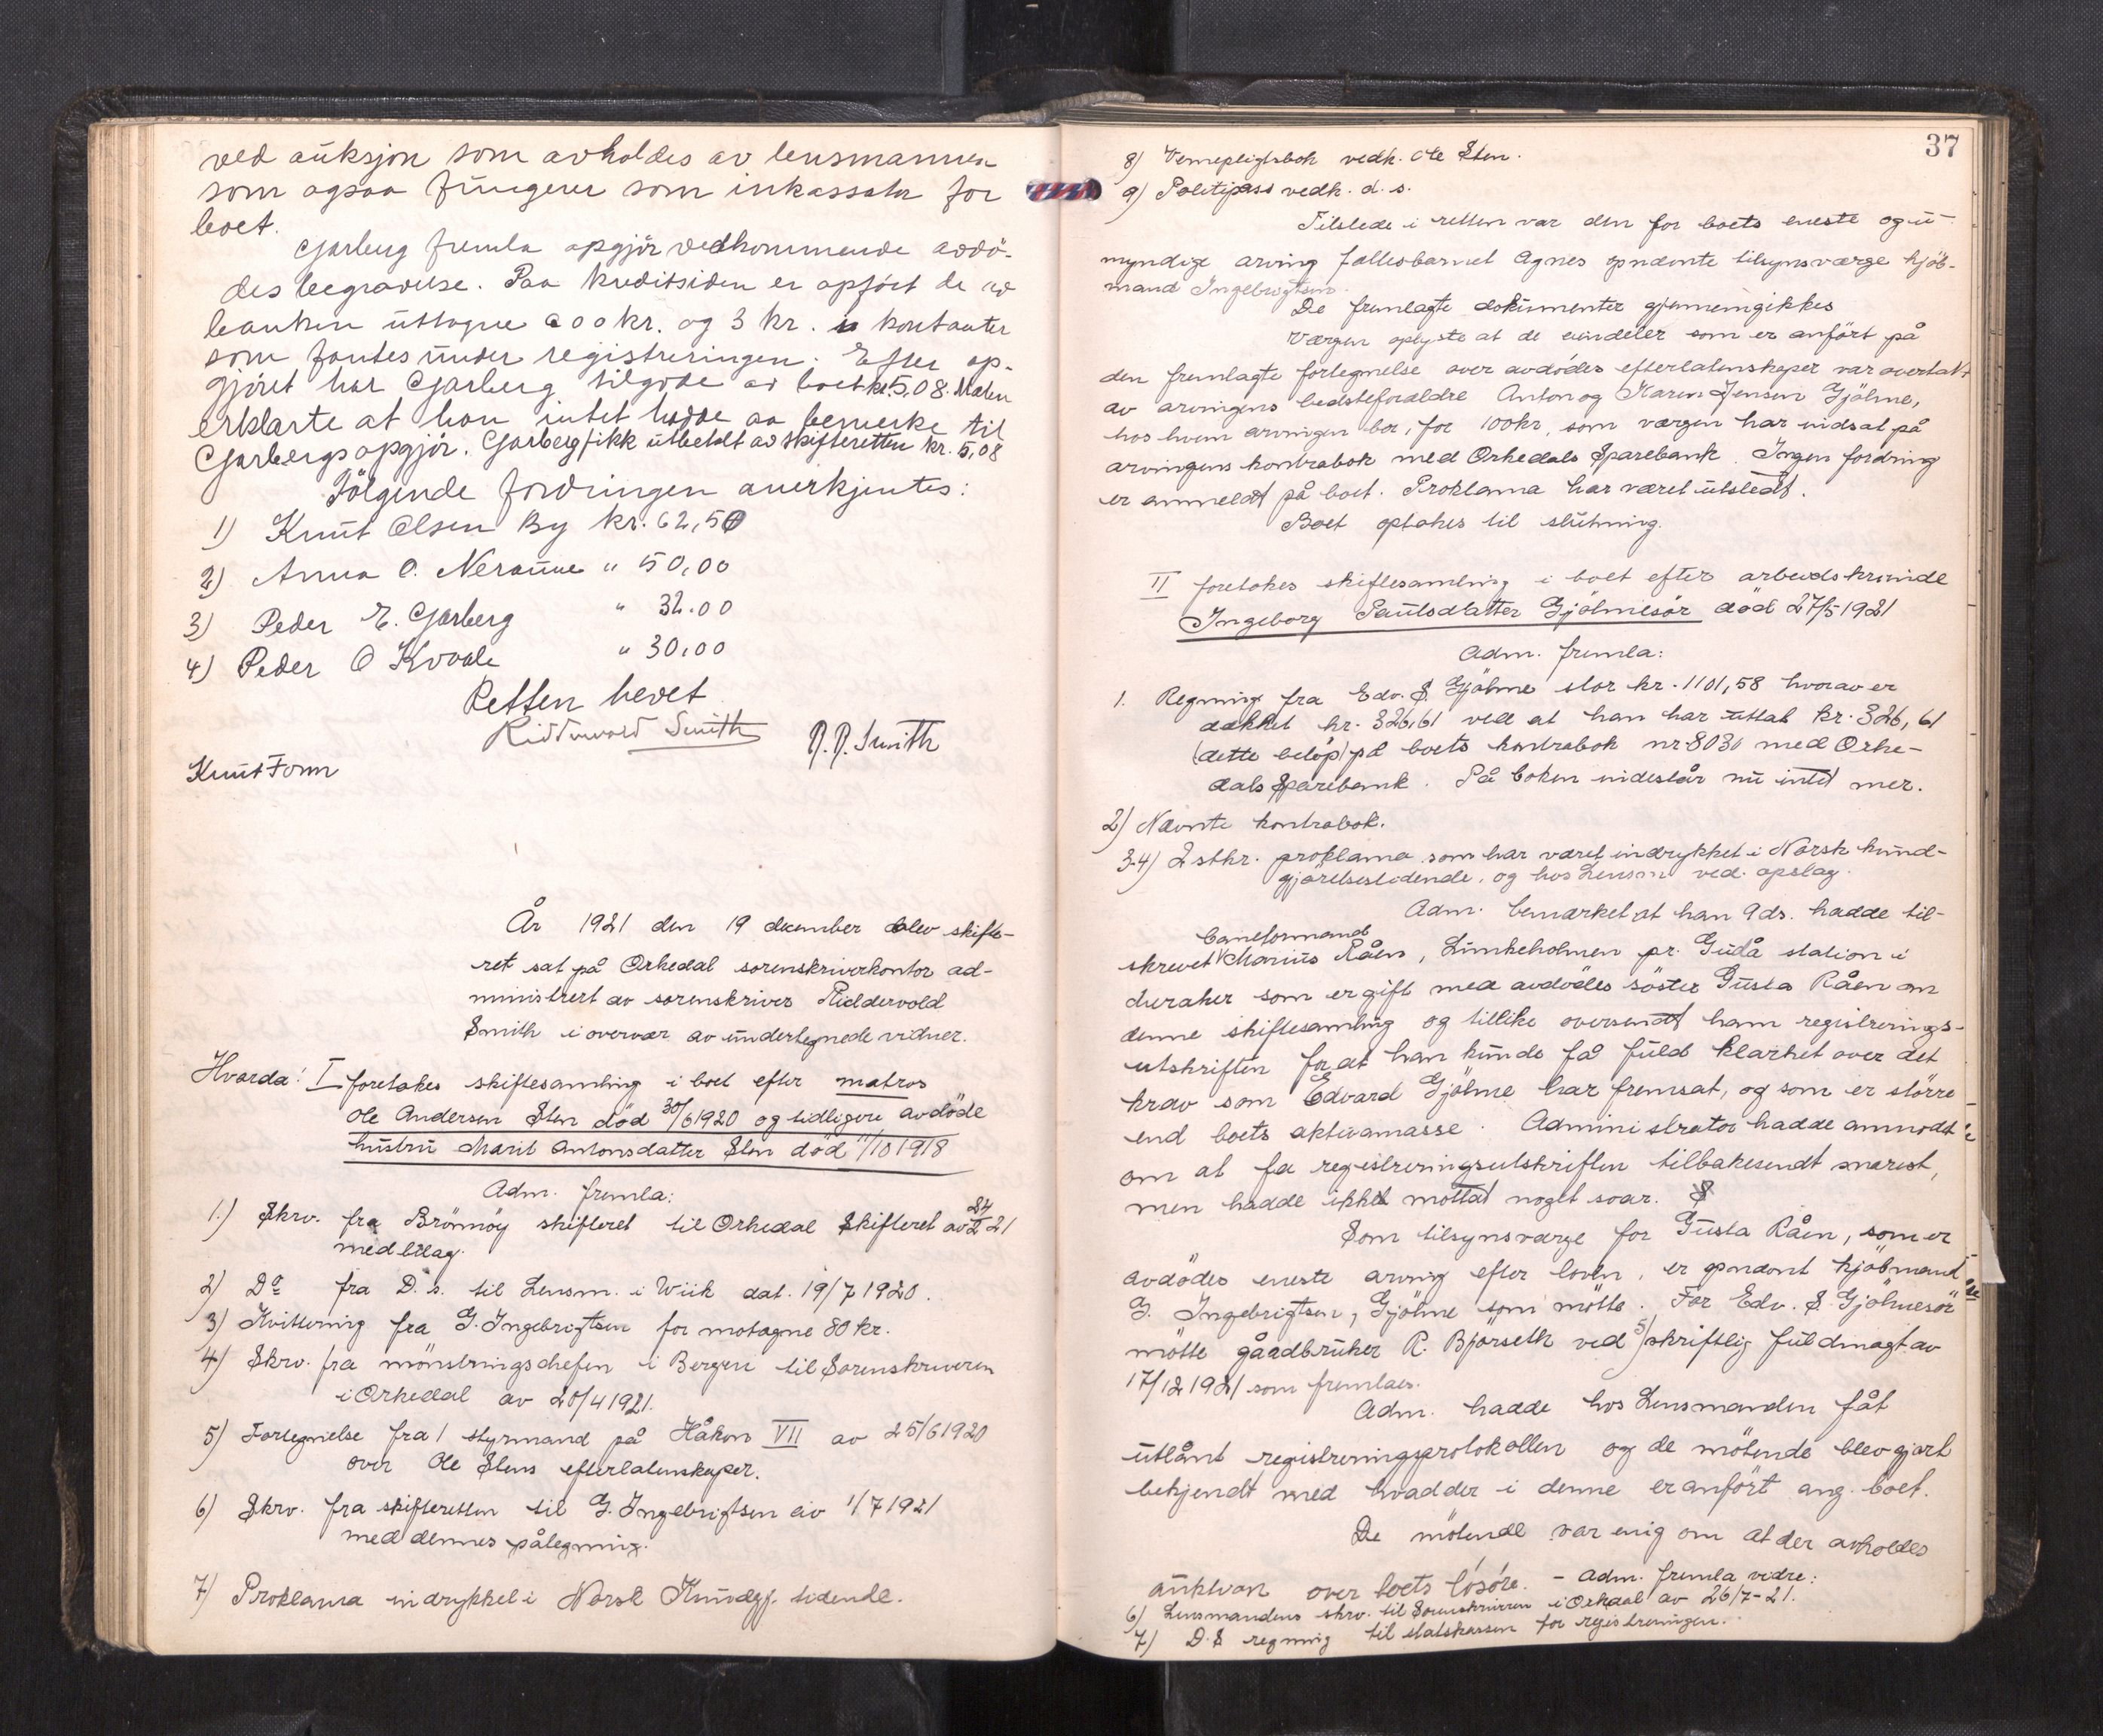 ved auksjon som avholdes av lensmannen
som ogsaa fungerer som inkassator for
boet.
Garberg fremla opgjör vedkommende avdö-
des begravelse. Paa kreditsiden er opfört de av
banken uttagne 200 kr. og 3 kr. i kontanter
som fantes under registreringen. Efter op-
gjöret har Garberg tilgode av boet kr. 5,08. Malen
erklærte at han intet hadde aa bemerke til
Garbergs opgjör. Garberg fikk utbetalt av skifteretten kr. 5,08
Fölgende fordringer anerkjentes:
1) Knut Olsen By kr. 62,50
2) Anna O. Neraune " 50,00
3) Peder E. Garberg " 32.00
4) Peder O Kvaale " 30,00
Retten hevet
Riddervold Smith R.R. Smith
Knut Fonn
År 1921 den 19 december blev skifte-
ret sat på Orkedal sorenskriverkontor ad-
ministrert av sorenskriver Riddervold
Smith i overvær av undertegnede vidner.
Hvorda: I foretakes skiftesamling i boet efter matros
Ole Andersen Sten död 30/6 1920 og tidligere avdöde
hustru Marit Antonsdatter Sten död 11/10 1918
Adm. fremla:
1.) Skrv. fra Brönnöy skifteret til Orkedal Skifteret av 24/2 21
med bilag.
2) Do fra D. s. til Lensm. i Wiik dat. 19/7 1920.
3) Kvittering fra G. Ingebrigtsen for motagne 80 kr.
4) Skrv. fra mönstringschefen i Bergen til Sorenskriveren
i Orkedal av 20/4 1921.
5) Fortegnelse fra 1 styrmand på Håkon VII av 25/6 1920
over Ole Stens efterlatenskaper.
6) Skrv. fra skifteretten til G. Ingebrigtsen av 1/7 1921
med dennes påtegning.
7) Proklama indrykket i Norsk Kundgj. tidende.
37
8) Vernepligtsbok vedk. Ole Sten.
9) Politipass vedk. d. s.
Tilstede i retten var den for boets eneste og u-
myndige arving fællesbarnet Agnes opnævnte tilsynsværge kjöb-
mand Ingebrigtsen.
De fremlagte dokumenter gjennemgikkes
Værgen oplyste at de eiendeler som er anfört på
den fremlagte fortegnelse over avdödes efterlatenskaper var overtatt
av arvingens bedsteforældre Anton og Karen Jensen Gjölme,
hos hvem arvingen bor, for 100 kr, som værgen har indsat på
arvingens kontrabok med Orkedals Sparebank. Ingen fordring
er anmeldt på boet. Proklama har været utstedt.
Boet optakes til slutning.
II foretakes skiftesamling i boet efter arbeidskvinde
Ingeborg Paulsdatter Gjölmesör död 27/5 1921
Adm. fremla:
1. Regning fra Edv. S. Gjölme stor kr. 1101,58 hvorav er
dækket kr. 326,61 ved at han har uttat kr. 326,61
(dette belöp) på boets kontrabok nr 8030 med Orke-
dals Sparebank. På boken indestår nu intet mer.
2) Nævnte kontrabok.
3-4) 2 stkr. proklama som har været indrykket i Norsk kund-
gjörelsestidende, og hos Lensm ved opslag.
Adm. bemærket at han 9 ds. hadde til-
baneformand
skrevet Marius Råen, Limkeholmen pr. Gudå station i
Meraker som er gift med avdödes söster Gusta Råen om
denne skiftesamling og tillike oversendt ham registrerings-
utskriften for at han kunde få fuld klarhet over det
krav som Edvard Gjölme har fremsat, og som er större
end boets aktivamasse. Administrator hadde anmodet
om at få registreringsutskriften tilbakesendt snarest,
men hadde ikke mottat noget svar.
Som tilsynsværge for Gusta Råen, som er
avdödes eneste arving efter loven, er opnævnt kjöbmand
G. Ingebrigtsen, Gjölme som mötte. For Edv. S. Gjölmesör
mötte gårdbruker R. Björseth ved 5) skriftlig fuldmagt av
17/12 1921 som fremlaes.
Adm. hadde hos Lensmanden fåt
utlånt registreringsprotokollen og de mötende blev gjort
bekjendt med hvad der i denne er anfört ang. boet.
De mötende var enig om at der avholdes
auktion over boets lösöre. - Adm. fremla vidre:
6) Lensmandens skrv. til Sorenskriveren i Orkedal av 26/7-21.
7) D. S regning til statskassen for registreringen.